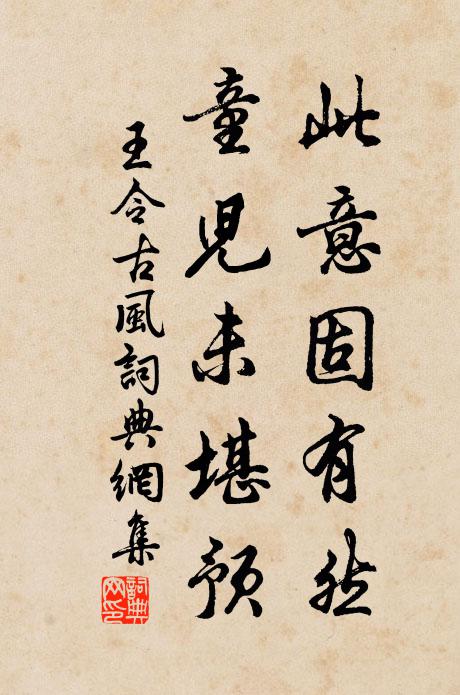 此意固有然
童児未堪預
王令古風詞典網集
詞典網印